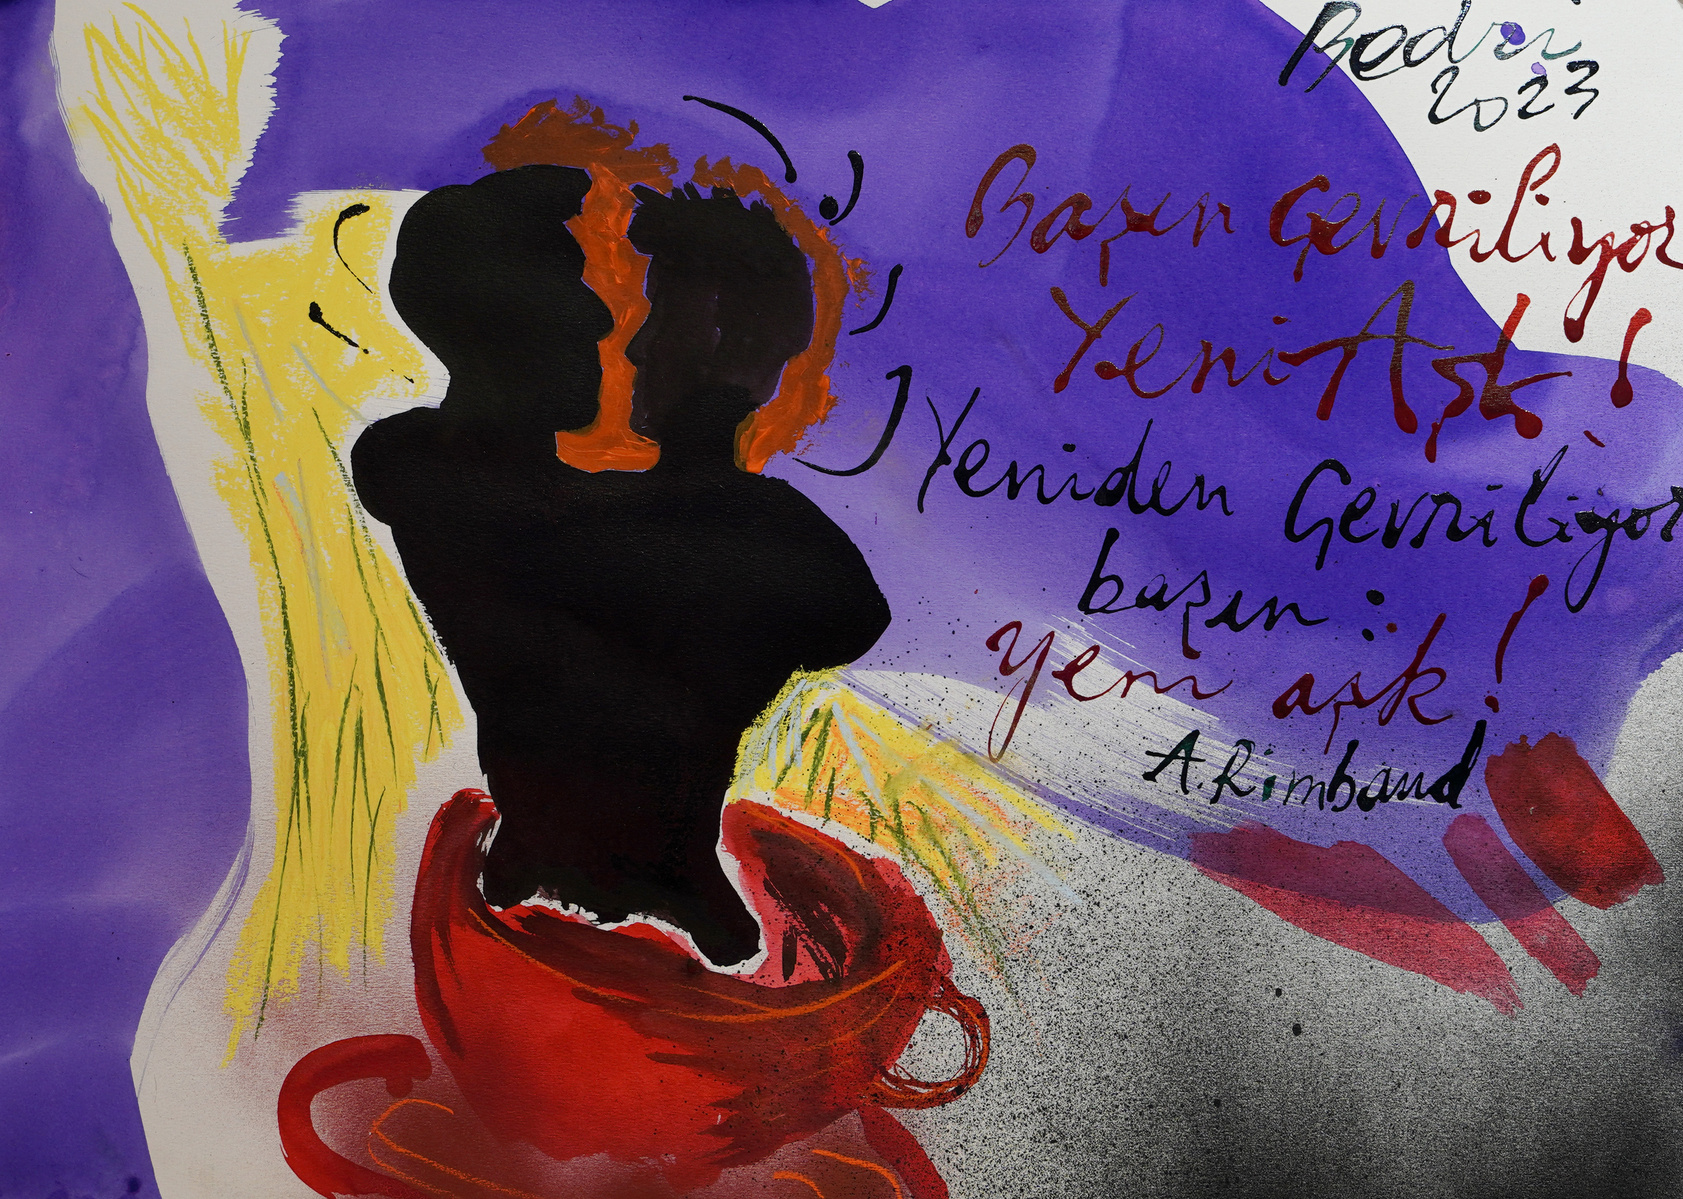 Bedri
2023
Başın Çevriliyor
Yeni Aşk!
Yeniden Çevriliyor
başın :
yeni aşk!
A. Rimbaud